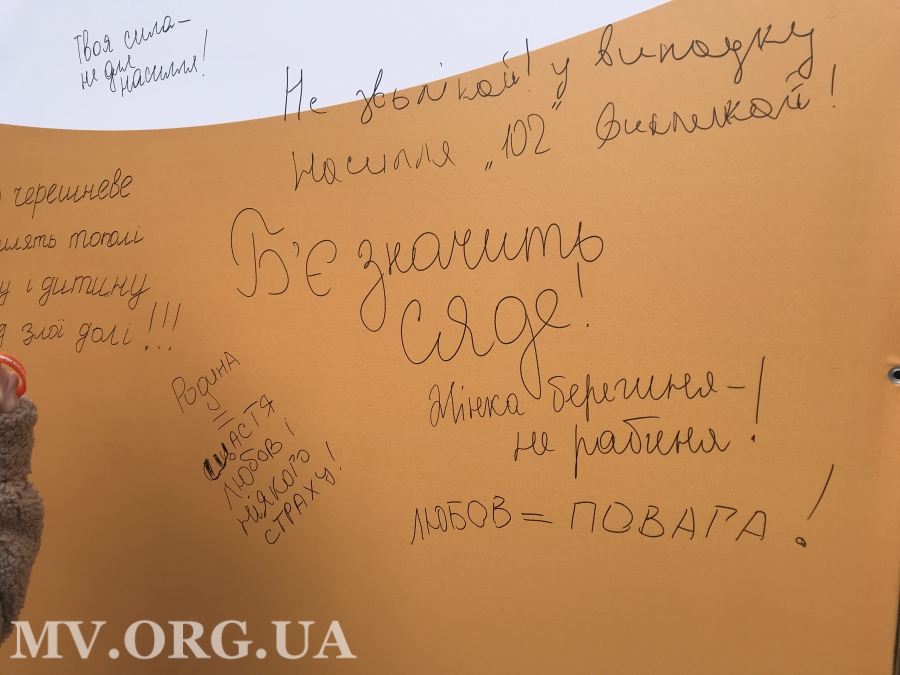 Твоя сила –
не для
насилля!
Не звикай! у випадку
насилля „102" викликай!
черешневе
тополі
у і дитину
злої долі !!!
Б'є значить
сяде!
Жінка берегиня –
не рабиня!
Родина
=
ЩАСТЯ
ЛЮБОВ і
НІЯКОГО
СТРАХУ!
ЛЮБОВ = ПОВАГА!
MV.ORG.UA